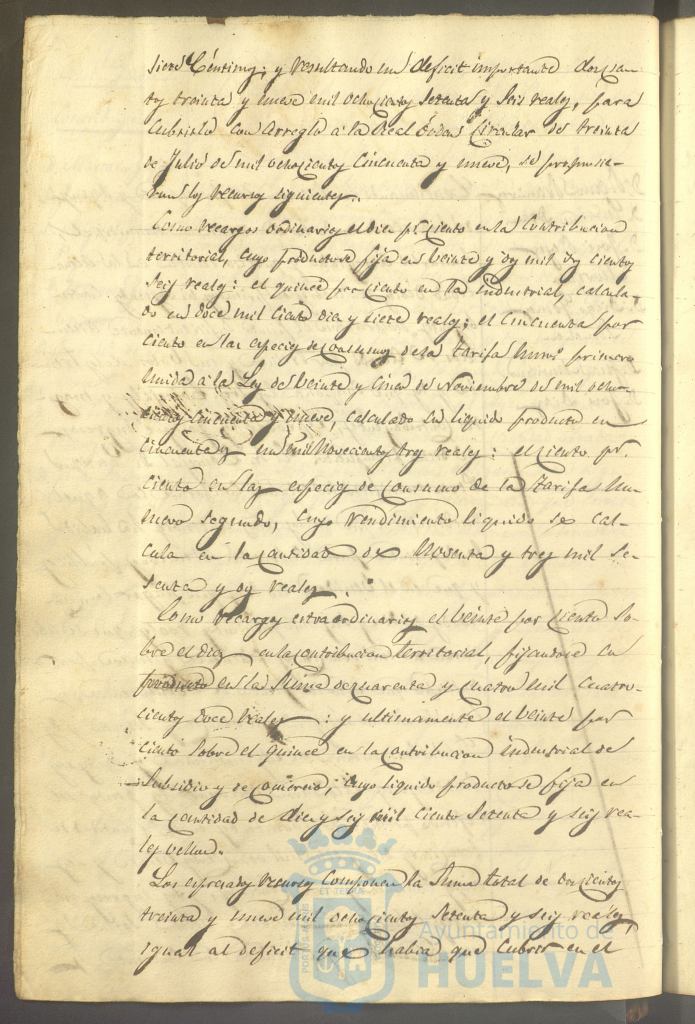 siete Centimos; y resultando un deficit importante doscien-
tos treinta y nueve mil ochocientos setenta y seis reales, para
cubrirlo con arreglo a la Real Orden Circular de treinta
de Julio de mil ochocientos cincuenta y nueve, se propusie-
ron los recursos siguientes.
Como recargos ordinarios el diez pr. ciento en la Contribucion
territorial, cuyo producto se fija en veinte y dos mil dos cientos
seis reales: el quince por ciento en la industrial, calcula-
do en doce mil ciento diez y siete reales; el cincuenta por
ciento en las especies de consumos de la tarifa Numo. primero
unida a la Ley de veinte y cinco de Noviembre de mil ocho-
cientos cincuenta y nueve, calculado su liquido producto en
cincuenta y un mil Novecientos tres reales: el ciento pr.
ciento en las especies de consumo de la tarifa Nu-
mero segundo, cuyo rendimiento liquido se cal-
cula en la cantidad de Noventa y tres mil se-
senta y dos reales.
Como recargos extraordinarios el veinte por ciento so-
bre el diez en la contribucion territorial, fijandose su
producto en la suma de cuarenta y cuatro mil cuatro-
cientos doce reales: y ultimamente el veinte por
ciento sobre el quince en la contribucion industrial de
Subsidio y de Comercio, cuyo liquido producto se fija en
la cantidad de diez y seis mil ciento setenta y seis rea-
les vellon.
Los espresados recursos componen la suma total de doscientos
treinta y nueve mil ochocientos setenta y seis reales,
igual al deficit que habia que cubrir en el
Ayuntamiento de
HUELVA